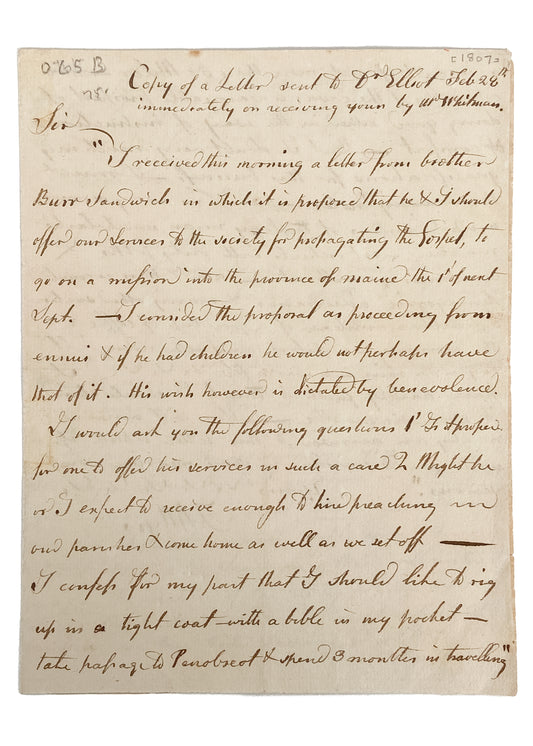 065 B
[1807]
75'
Copy of a Letter sent to Dr Elliot Feb 28th
immediately on receiving yours by Mr Whitman.
Sir
"I received this morning a letter from brother
Burr Sandwich in which it is proposed that he & I should
offer our services to the society for propagating the Gospel, to
go on a mission into the province of maine the 1t of next
Sept. — I consider the proposal as proceeding from
ennui & if he had children he would not perhaps have
thot of it. His wish however is dictated by benevolence.
I would ask you the following questions 1t Is it proper
for one to offer his services in such a case 2 Might he
or I expect to receive enough to hire preaching in
our parishes & come home as well as we set off —
I confess for my part that I should like to rig
up in a tight coat with a bible in my pocket —
take passage to Penobscot & spend 3 months in travelling"